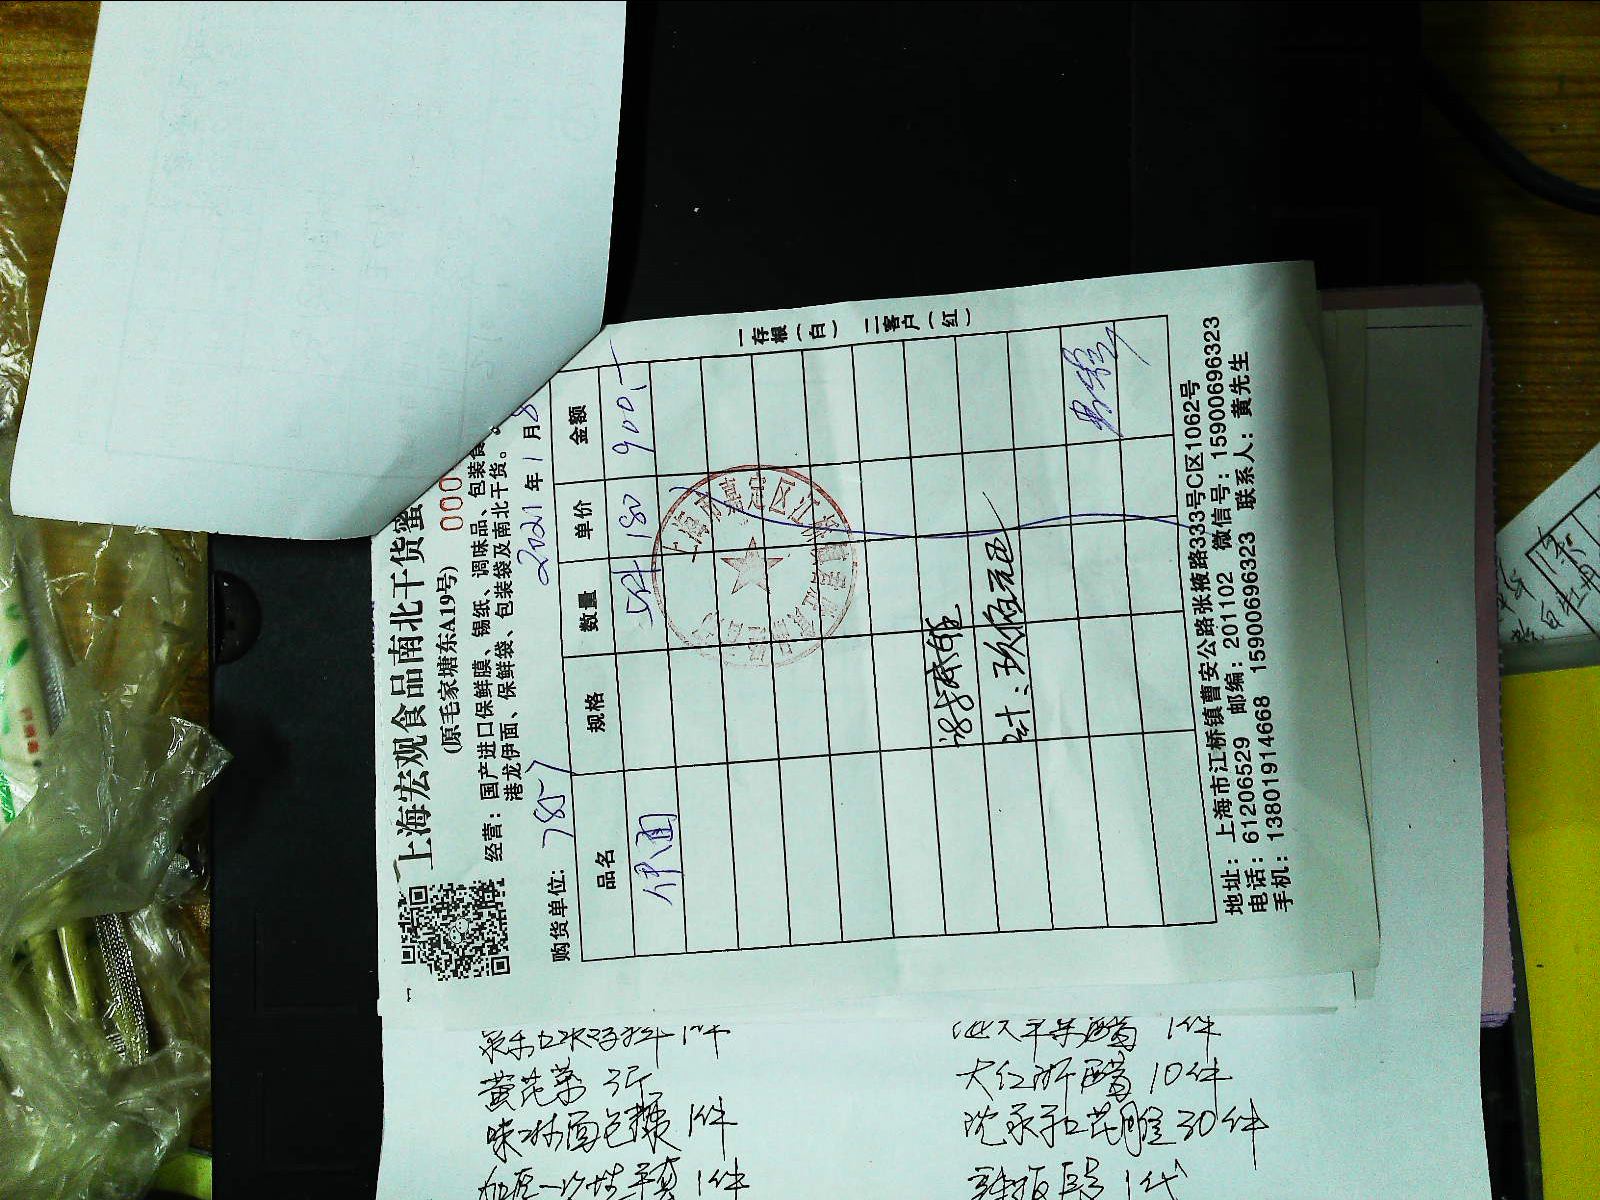 上海宏观食品南北干货蜜
(原毛家塘东A19号) 000
经营：国产进口保鲜膜、锡纸、调味品、包装食
港龙伊面、保鲜袋、包装袋及南北干货。
购货单位: 7857 2021年1月8
品名 规格 数量 单价 金额
伊面 5件 180 900.-
计：玖佰元
一存根(白) 二客户(红)
上海市嘉定区江桥
地址：上海市江桥镇曹安公路张掖路333号C区1062号
电话：61206529 邮编：201102 微信号：15900696323
手机：13801914668 15900696323 联系人：黄先生
1件
黄花菜 3斤
味淋面包糠 1件
一次性 1件
苹果醋 1件
大红浙醋 10件
花雕 30件